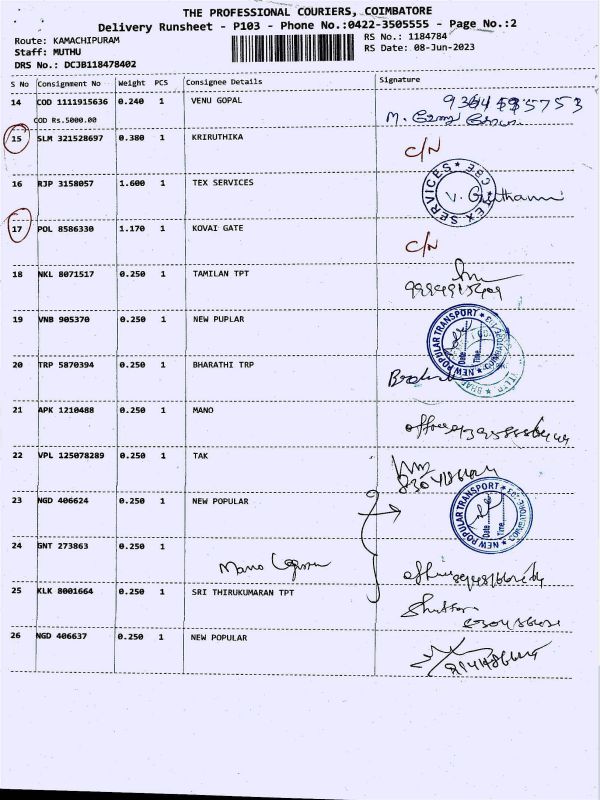 THE PROFESSIONAL COURIERS, COIMBATORE
Delivery Runsheet - P103 - Phone No.:0422-3505555 - Page No.:2
Route: KAMACHIPURAM
RS No.: 1184784
Staff: MUTHU
RS Date: 08-Jun-2023
DRS No.: DCJB118478402
S No Consignment No Weight PCS Consignee Details Signature
14 COD 1111915636 0.240 1 VENU GOPAL
COD Rs.5000.00
15 SLM 321528697 0.380 1 KRIRUTHIKA C/N
16 RJP 3158057 1.600 1 TEX SERVICES
TEX SERVICES CBE
17 POL 8586330 1.170 1 KOVAI GATE C/N
18 NKL 8071517 0.250 1 TAMILAN TPT
19 VNB 905370 0.250 1 NEW PUPLAR
NEW POPULAR TRANSPORT
Date
Time
20 TRP 5870394 0.250 1 BHARATHI TRP
21 APK 1210488 0.250 1 MANO
22 VPL 125078289 0.250 1 TAK
23 NGD 406624 0.250 1 NEW POPULAR
NEW POPULAR TRANSPORT
Date
Time
24 GNT 273863 0.250 1 Mano
25 KLK 8001664 0.250 1 SRI THIRUKUMARAN TPT
26 NGD 406637 0.250 1 NEW POPULAR